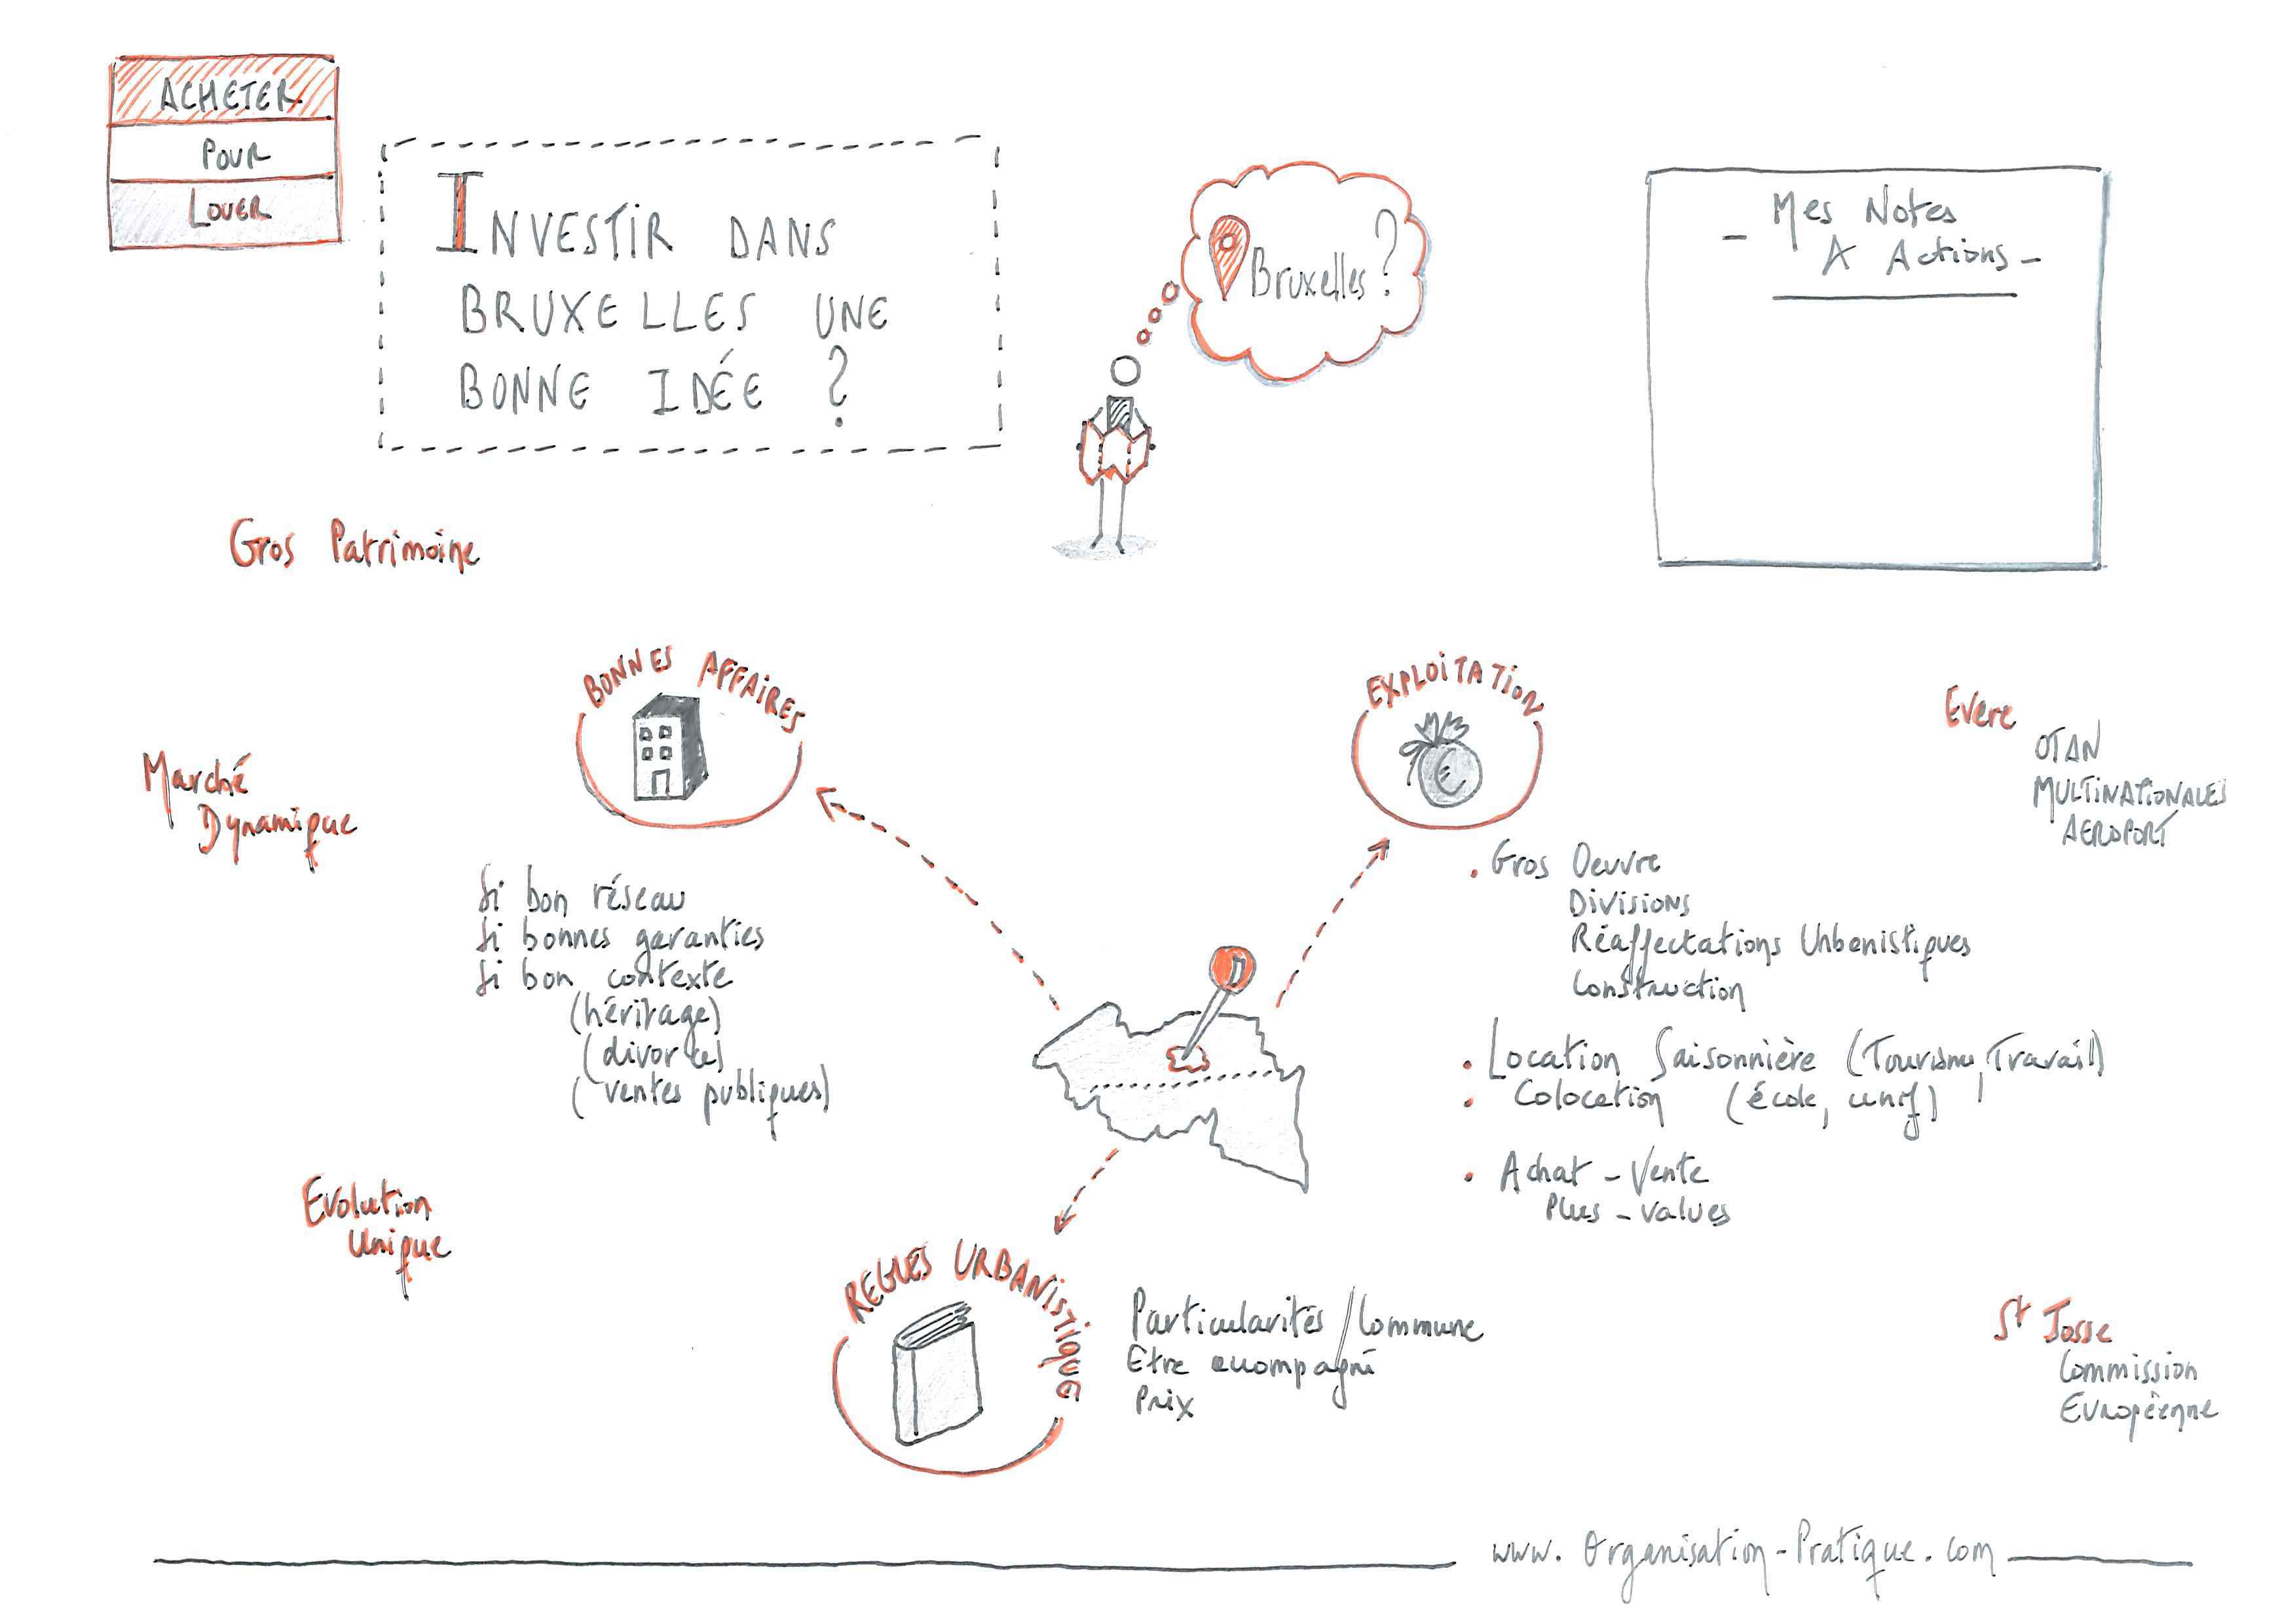 ACHETER
POUR
LOUER
INVESTIR DANS
BRUXELLES UNE
BONNE IDÉE ?
Bruxelles ?
- Mes Notes
A Actions -
Gros Patrimoine
BONNES AFFAIRES
Marché
Dynamique
Si bon réseau
Si bonnes garanties
Si bon contexte
(héritage)
(divorces)
(ventes publiques)
Evolution
Unique
EXPLOITATION
. Gros Oeuvre
Divisions
Réaffectations Urbanistiques
Construction
. Location Saisonnière (Tourisme, Travail)
. Colocation (école, unif)
. Achat - Vente
Plus - values
Evere
OTAN
MULTINATIONALES
AEROPORT
REGLES URBANISTIQUE
Particularités / Commune
Etre accompagné
Prix
St Josse
Commission
Européenne
www.Organisation-Pratique.com